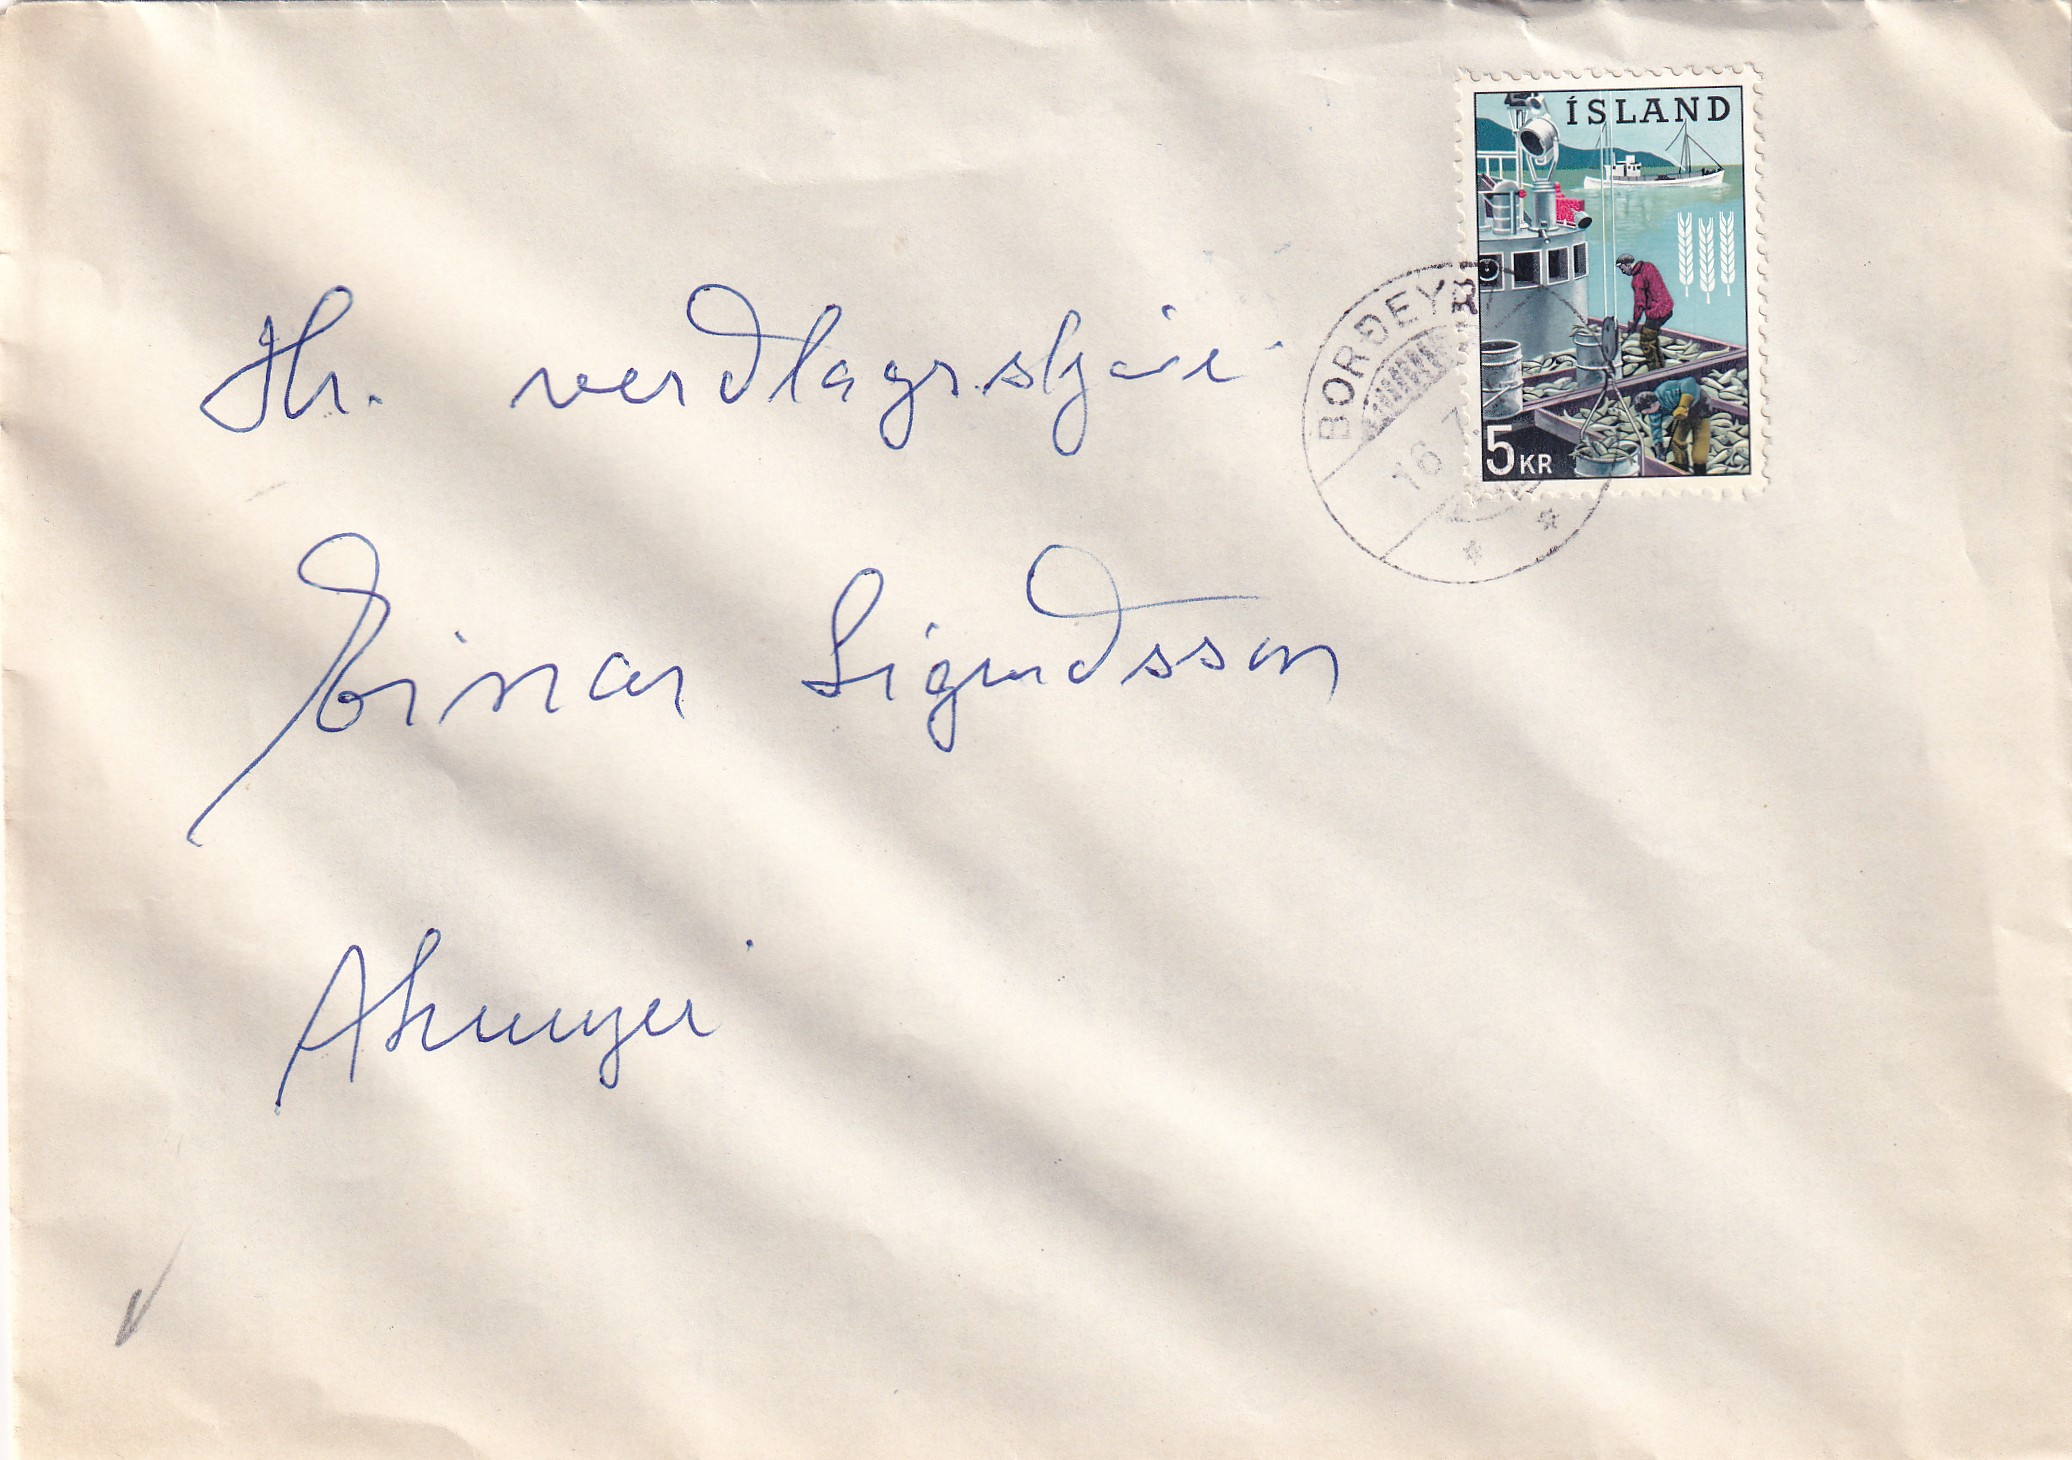 ÍSLAND
BORÐEYRI
16 7.
5 KR
Hr. verðlagsstjóri
Einar Sigurðsson
Akureyri